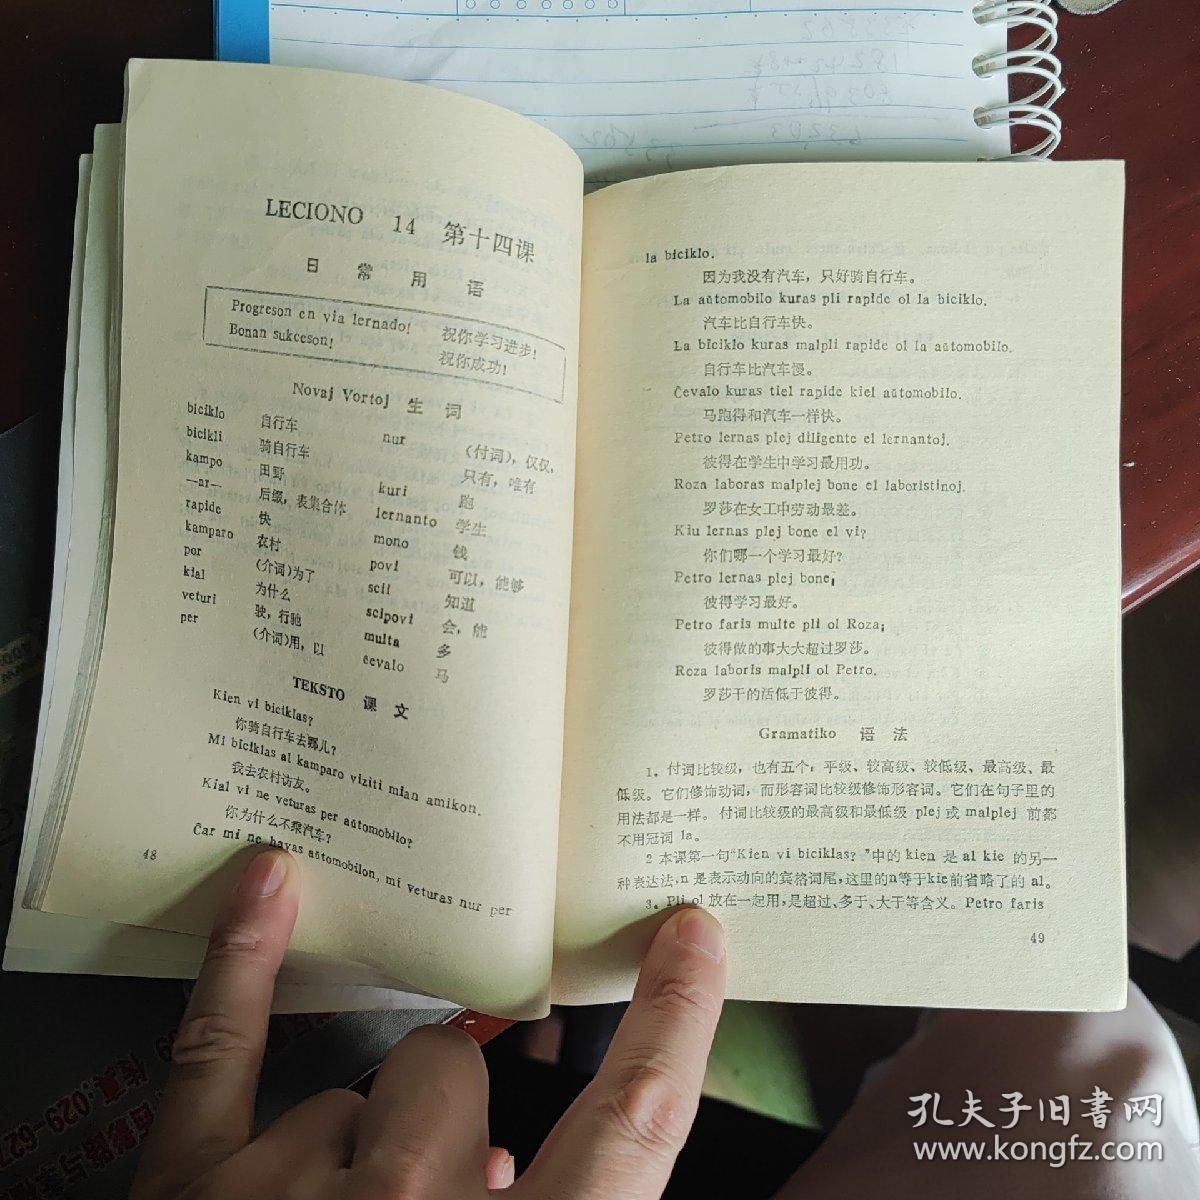 LECIONO 14 第十四课
日常用语
Progreson en via lernado! 祝你学习进步!
Bonan sukceson! 祝你成功!
Novaj Vortoj 生词
biciklo 自行车
bicikli 骑自行车
kampo 田野
—ar— 后缀，表集合体
rapide 快
kamparo 农村
por (介词)为了
kial 为什么
veturi 驶，行驰
per (介词)用，以
nur (付词)，仅仅，
只有，唯有
kuri 跑
lernanto 学生
mono 钱
povi 可以，能够
scii 知道
scipovi 会，能
multa 多
ĉevalo 马
TEKSTO 课文
Kien vi biciklas?
你骑自行车去哪儿?
Mi biciklas al kamparo viziti mian amikon.
我去农村访友。
Kial vi ne veturas per aŭtomobilo?
你为什么不乘汽车?
Ĉar mi ne havas aŭtomobilon, mi veturas nur per
48
la biciklo.
因为我没有汽车，只好骑自行车。
La aŭtomobilo kuras pli rapide ol la biciklo.
汽车比自行车快。
La biciklo kuras malpli rapide ol la aŭtomobilo.
自行车比汽车慢。
Ĉevalo kuras tiel rapide kiel aŭtomobilo.
马跑得和汽车一样快。
Petro lernas plej diligente el lernantoj.
彼得在学生中学习最用功。
Roza laboras malplej bone el laboristinoj.
罗莎在女工中劳动最差。
Kiu lernas plej bone el vi?
你们哪一个学习最好?
Petro lernas plej bone;
彼得学习最好。
Petro faris multe pli ol Roza;
彼得做的事大大超过罗莎。
Roza laboris malpli ol Petro.
罗莎干的活低于彼得。
Gramatiko 语法
1. 付词比较级，也有五个：平级、较高级、较低级、最高级、最
低级。它们修饰动词，而形容词比较级修饰形容词。它们在句子里的
用法都是一样。付词比较级的最高级和最低级 plej 或 malplej 前都
不用冠词 la。
2 本课第一句“Kien vi biciklas?”中的 kien 是 al kie 的另一
种表达法，n 是表示动向的宾格词尾，这里的n等于kie前省略了的 al。
3. Pli ol 放在一起用，是超过、多于、大于等含义。Petro faris
49
孔夫子旧书网
www.kongfz.com